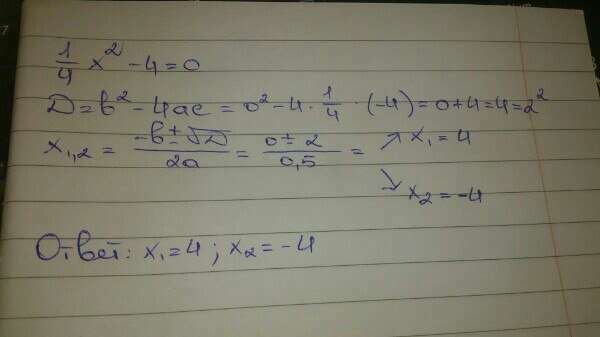 1/4 x² - 4 = 0
D = b² - 4ac = 0² - 4 · 1/4 · (-4) = 0 + 4 = 4 = 2²
x₁,₂ = (-b ± √D)/2a = (0 ± 2)/0,5 = ↗ x₁ = 4
↘ x₂ = -4
Ответ: x₁ = 4 ; x₂ = -4